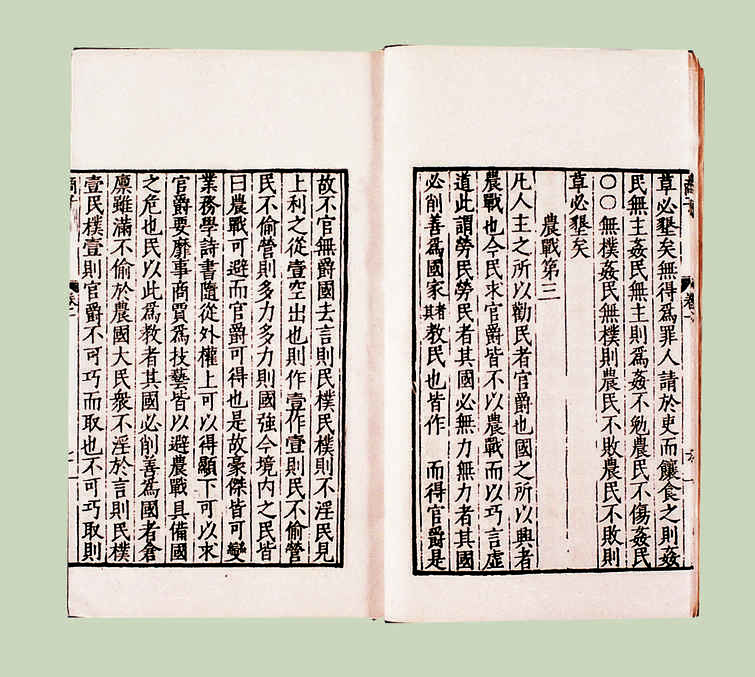 草必墾矣無得爲罪人請於吏而饟食之則姦
民無主姦民無主則爲姦不勉農民不傷姦民
〇〇無樸姦民無樸則農民不敗農民不敗則
草必墾矣
農戰第三
凡人主之所以勸民者官爵也國之所以興者
農戰也今民求官爵皆不以農戰而以巧言虛
道此謂勞民勞民者其國必無力無力者其國
必削善爲國家者其教民也皆作 而得官爵是
故不官無爵國去言則民樸民樸則不淫民見
上利之從壹空出也則作壹作壹則民不偷營
民不偷營則多力多力則國強今境內之民皆
曰農戰可避而官爵可得也是故豪傑皆可變
業務學詩書隨從外權上可以得顯下可以求
官爵要靡事商賈爲技藝皆以避農戰具備國
之危也民以此爲教者其國必削善爲國者倉
廩雖滿不偷於農國大民衆不淫於言則民樸
壹民樸壹則官爵不可巧而取也不可巧取則